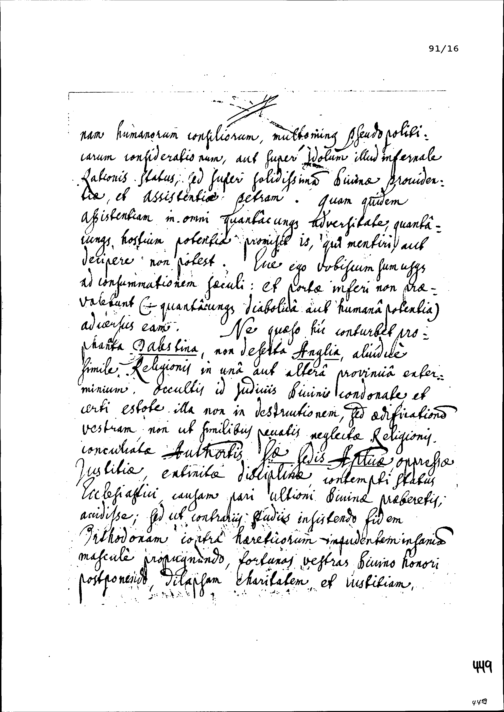 91/16
nam humanorum consiliorum, multoming Pseudopoliti:
carum considerationum, aut super Idolum illud infernale
Rationis Status; sed super solidissimâ Divinæ Providen-
tiæ, et assistentiæ petram. quam quidem
assistentiam in omni quantâcungs Adversitate, quantâ-
cungs hostium potentiâ promisit is, qui mentiri, aut
decipere non potest. Ecce ego vobiscum sum usqs
ad consummationem sæculi: et portæ inferi non præ-
valebunt (quantâcungs diabolicâ aut humanâ potentiâ)
adversus eam. Ne quæso hic conturbet pro-
phanata Palæstina, non deserta Anglia, aliudve
simile Religionis in unâ aut alterâ provinciâ exter-
minium. Occultis id Judiciis Divinis condonate et
certi estote illa non in destructionem, sed ædificationem
vestram. non ut similibus peccatis neglectæ Religionis.
conculcatæ Authoritatis Sæ Sedis Aptcæ oppressæ
Justitiæ, extinctæ disciplinæ contempti Status
Ecclesiastici causam pari ultioni Divinæ præberetis,
accidisse; sed ut contrariis studiis insistendo fidem
Orthodoxam contra hæreticorum impudentem insaniam
masculè propugnando, fortunas vestras Divino honori
postponendo, dilapsam charitatem et iustitiam,
449
449